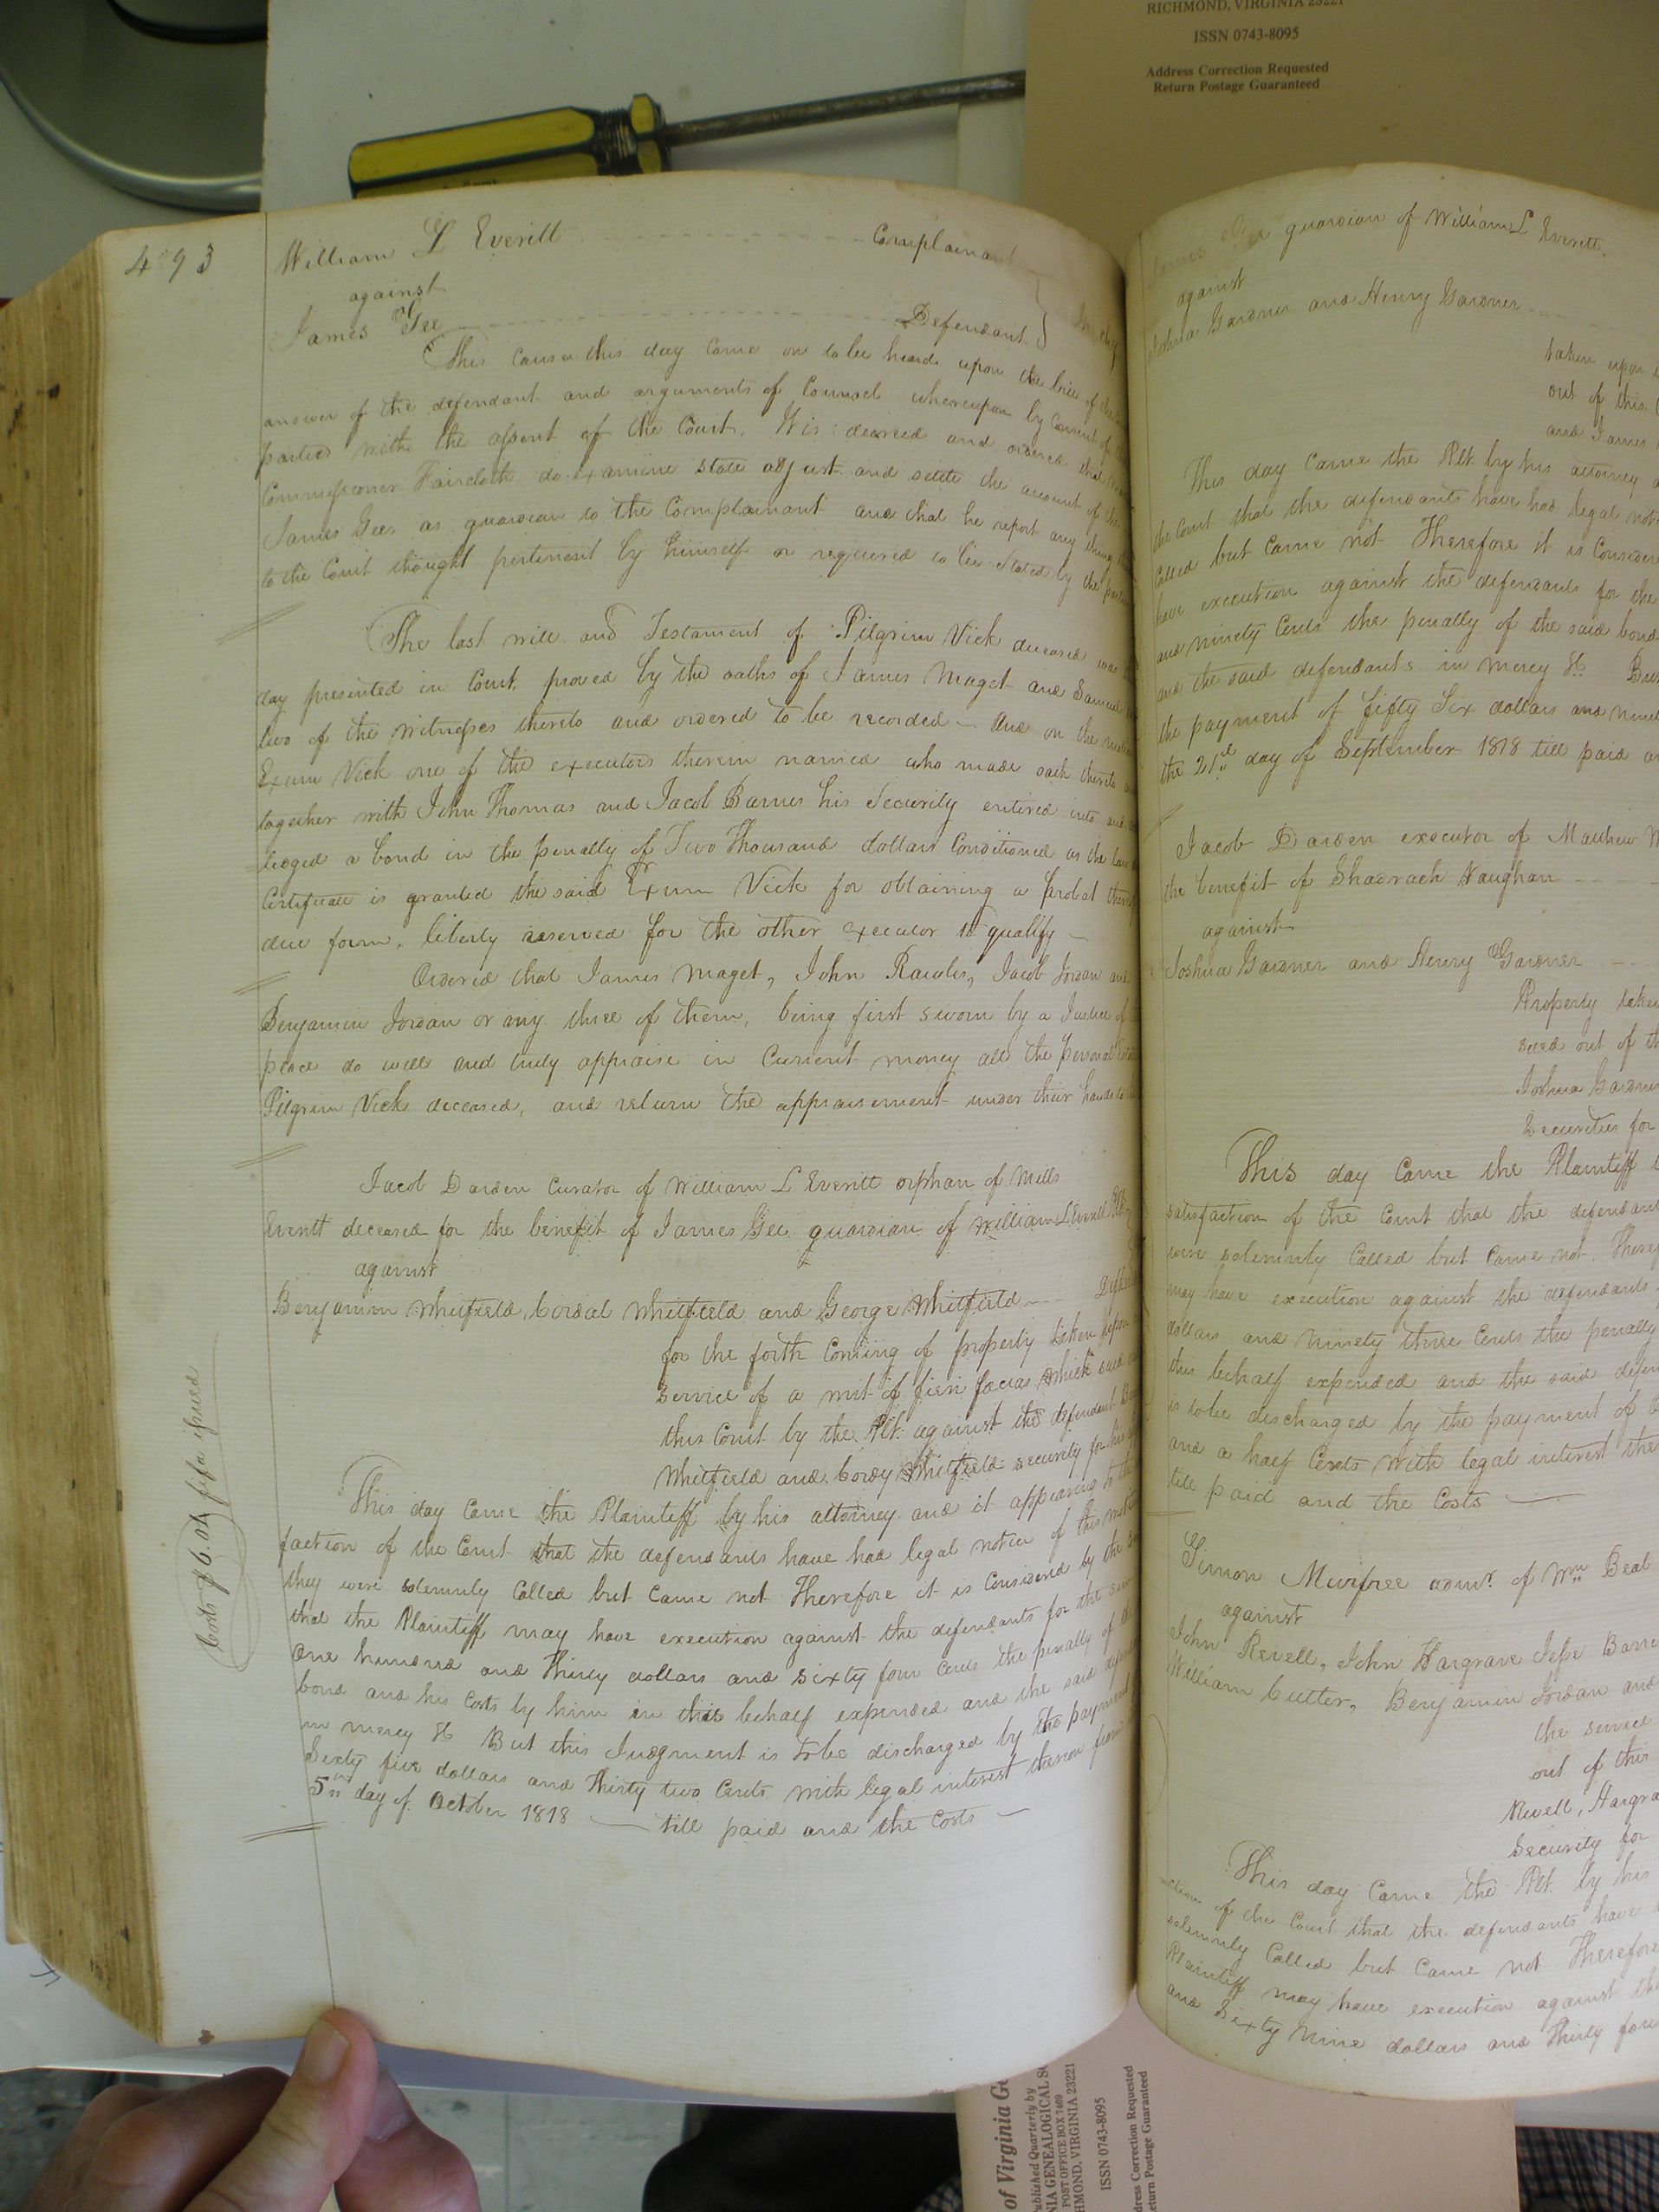 RICHMOND, VIRGINIA 23221
ISSN 0743-8095
Address Correction Requested
Return Postage Guaranteed
493
William L Everitt Complainant
against
James Gee Defendant
This cause this day came on to be heard upon the bill of
answer of the defendant and arguments of Counsel whereupon by Consent of
parties with the assent of the Court. It is decreed and ordered that
Commissioner Faircloth do examine state adjust and settle the account of the
James Gee as guardian to the Complainant and that he report any thing
to the Court thought pertinent by himself or required to be stated by the
The last will and Testament of Pilgrim Vick deceased was
day presented in Court, proved by the oaths of James Maget and Samuel
two of the witnesses thereto and ordered to be recorded - And on the
Exum Vick one of the executors therein named who made oath thereto
together with John Thomas and Jacob Barnes his Security entered into and
ledged a bond in the penalty of Two Thousand dollars Conditioned as the law
Certificate is granted the said Exum Vick for obtaining a probat
due form, liberty reserved for the other executor to qualify -
Ordered that James Maget, John Rawls, Jacob Jordan and
Benjamin Jordan or any three of them, being first sworn by a Justice of
peace do well and truly appraise in Current money all the personal
Pilgrim Vick deceased, and return the appraisement under their hands
Jacob Darden Curator of William L Everitt orphan of Mills
Everitt deceased for the benefit of James Gee guardian of William L Everitt
against
Benjamin Whitfield, Cordal Whitfield and George Whitfield
for the forth Coming of property taken upon
service of a writ of fieri facias which said
this Court by the Plt. against the defendant
Whitfield and Cordy Whitfield security for his
Costs $6.04 fi fa issued
This day Came the Plaintiff by his attorney and it appearing to the
faction of the Court that the defendants have had legal notice of this
they were solemnly Called but Came not Therefore it is Considered by the
that the Plaintiff may have execution against the defendants for the sum
One hundred and Thirty dollars and sixty four Cents the penalty of the
bond and his Costs by him in this behalf expended and the said
in mercy &c But this Judgment is to be discharged by the payment
Sixty five dollars and Thirty two Cents with legal interest thereon from
5th day of October 1818 till paid and the Costs -
guardian of William L Everitt
against
Joshua Gardner and Henry Gardner
taken upon
out of this
and James
This day Came the Plt. by his attorney
the Court that the defendants have had legal
Called but Came not Therefore it is
have execution against the defendants for the
and ninety Cents the penalty of the said bond
and the said defendants in mercy &c
the payment of fifty Six dollars and
the 21st day of September 1818 till paid
Jacob Darden executor of Matthew
the benefit of Shadrach Vaughan
against
Joshua Gardner and Henry Gardner
Property
out of
Joshua
Securities for
This day Came the Plaintiff
satisfaction of the Court that the
were solemnly Called but Came not
may have execution against the defendants
dollars and ninety three Cents the penalty
this behalf expended and the said
is to be discharged by the payment of
and a half Cents with legal interest
till paid and the Costs
Simon Murfree admr. of Wm Beal
against
John Revell, John Hargrave Jesse
William Cutler, Benjamin Jordan and
the service
out of this
Revell,
Security for
This day Came the Plt. by his
of the Court that the defendants have
solemnly Called but Came not Therefore
Plaintiff may have execution against the
and Sixty Nine dollars and Thirty
of Virginia
Published Quarterly by
POST OFFICE BOX 7469
RICHMOND, VIRGINIA 23221
ISSN 0743-8095
Address Correction Requested
Return Postage Guaranteed